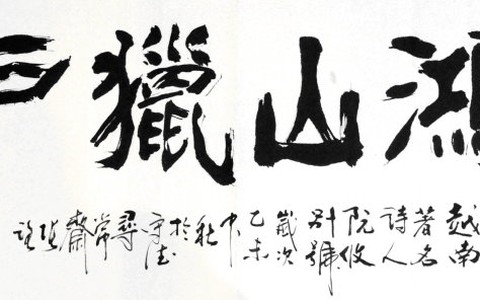 鴻山獵
越南著名詩人阮攸別號歲次乙未中秋於守德尋常齋